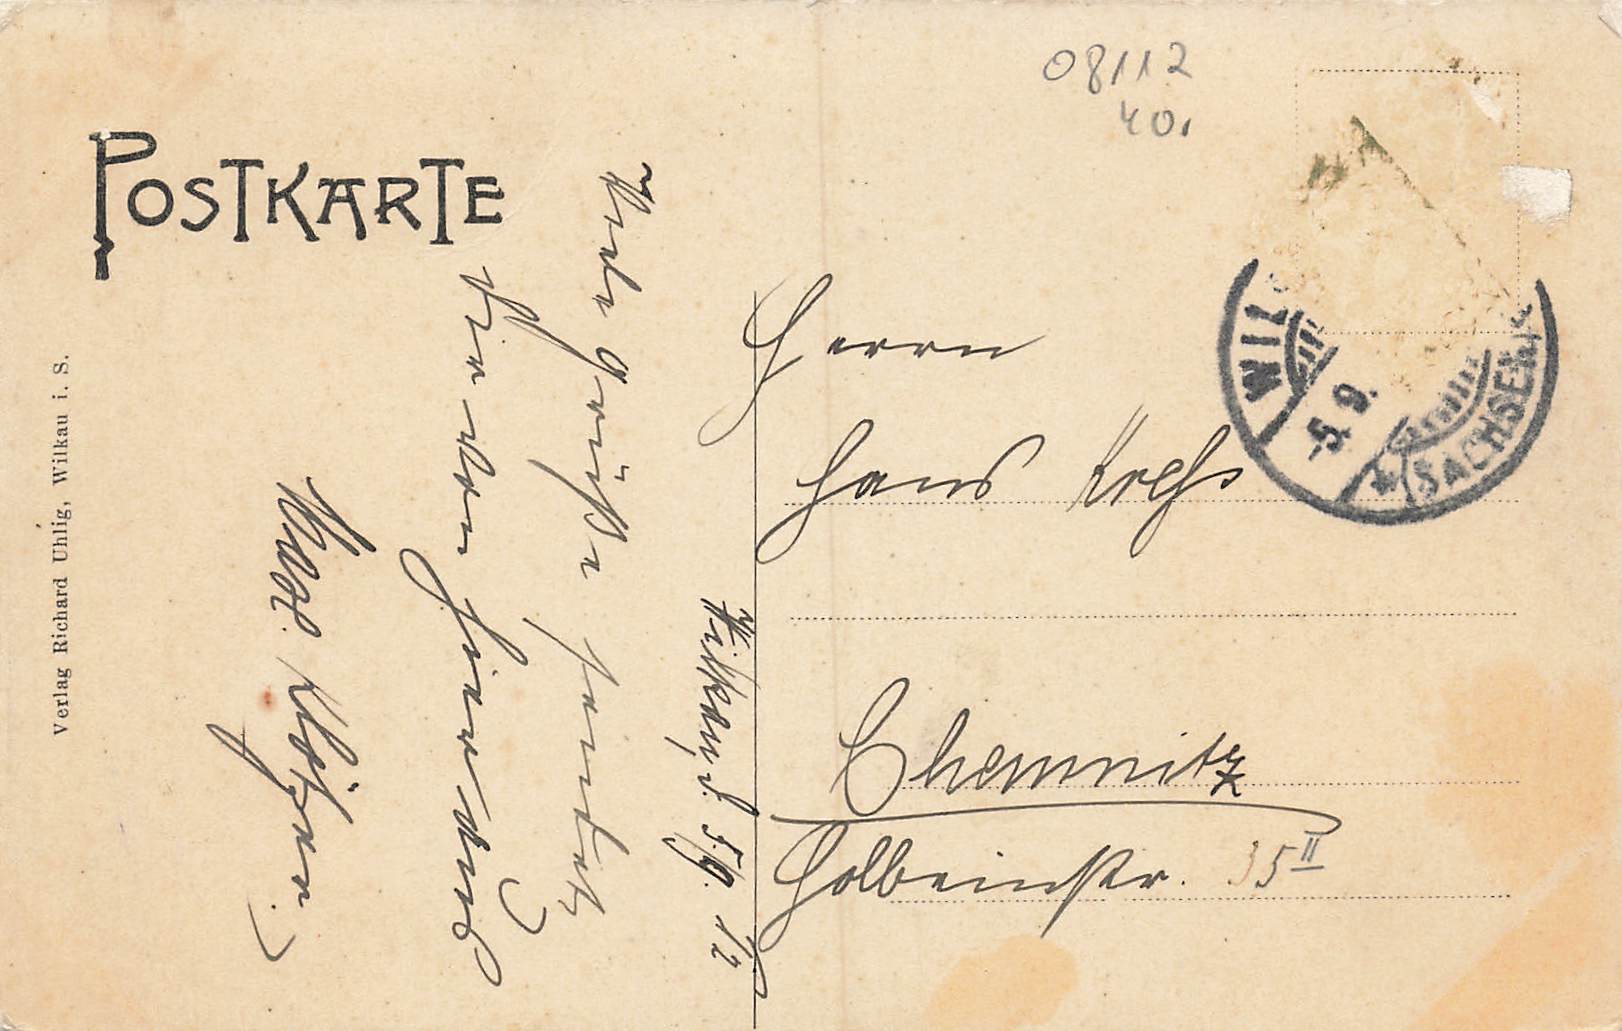 08112
40.
POSTKARTE
WIL
-5.9.
SACHSEN
Herrn
Hans Krehs
Chemnitz
Holbeinstr. 35 II
Wilkau, d. 5/9. 12
Viele Grüße sendet
Dir von hier aus
Max Klötzer.
Verlag Richard Uhlig, Wilkau i. S.